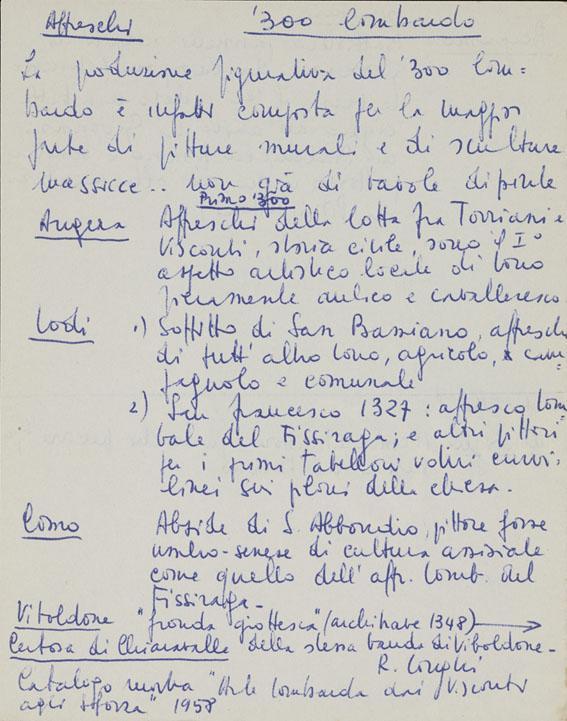 Affreschi '300 lombardo
La produzione figurativa del '300 lom=
bardo è infatti composta per la maggior
parte di pitture murali e di sculture
massicce.. non già di tavole dipinte
Primo '300
Angera Affreschi della lotta fra Torriani e
Visconti, storia civile, sono il I°
aspetto artistico locale di tono
pienamente aulico e cavalleresco
Lodi 1) Soffitto di San Bassiano, affreschi
di tutt'altro tono, agricolo, cam=
pagnolo e comunale
2) San Francesco 1327: affresco tom=
bale del Fissiraga; e altri pittori
per i primi tabelloni votivi curvi=
linei sui piloni della chiesa.
Como Abside di S. Abbondio, pittore forse
umbro-senese di cultura assisiale
come quello dell'affr. tomb. del
Fissiraga-
Viboldone "fronda giottesca" (architrave 1348)
Certosa di Chiaravalle della stessa banda di Viboldone-
R. Longhi
Catalogo mostra "Arte lombarda dai Visconti
agli Sforza" 1958